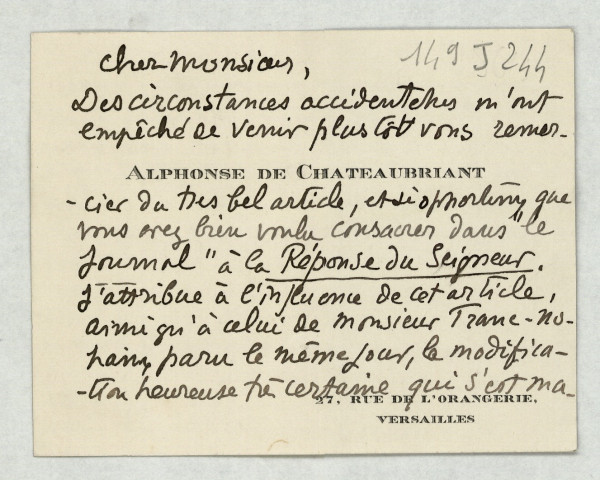 149 J 244
Cher Monsieur,
Des circonstances accidentelles m'ont
empêché de venir plus tôt vous remer-
ALPHONSE DE CHATEAUBRIANT
-cier du très bel article, et si opportun, que
vous avez bien voulu consacrer dans "le
Journal" à la Réponse du Seigneur.
J'attribue à l'influence de cet article,
ainsi qu'à celui de Monsieur Franc-No-
hain, paru le même jour, la modifica-
-tion heureuse très certaine qui s'est ma-
27, RUE DE L'ORANGERIE,
VERSAILLES